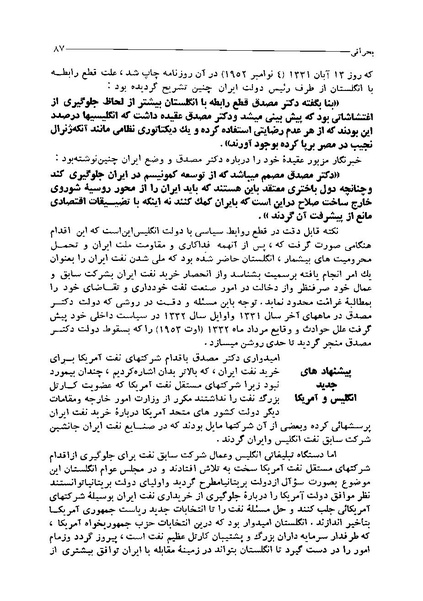 بحرانی ۸۷
که روز ۱۳ آبان ۱۳۳۱ (۴ نوامبر ۱۹۵۲) در آن روزنامه چاپ شد، علت قطع رابطه
با انگلستان از طرف رئیس دولت ایران چنین تشریح گردیده بود :
«بنا بگفته دکتر مصدق قطع رابطه با انگلستان بیشتر از لحاظ جلوگیری از
اغتشاشاتی بود که پیش بینی میشد ودکتر مصدق عقیده داشت که انگلیسیها درصدد
این بودند که از هر عدم رضایتی استفاده کرده و یك دیکتاتوری نظامی مانند آنکه ژنرال
نجیب در مصر برپا کرده بوجود آورند».
خبرنگار مزبور عقیدهٔ خود را درباره دکتر مصدق و وضع ایران چنین نوشته بود :
«دکتر مصدق مصمم میباشد که از توسعه کمونیسم در ایران جلوگیری کند
وچنانچه دول باختری معتقد باین هستند که باید ایران را از محور روسیهٔ شوروی
خارج ساخت صلاح دراین است که بایران کمك کنند نه اینکه با تضییقات اقتصادی
مانع از پیشرفت آن گردند».
نکته قابل دقت در قطع روابط سیاسی با دولت انگلیس این است که این اقدام
هنگامی صورت گرفت که ، پس از آنهمه فداکاری و مقاومت ملت ایران و تحمل
محرومیت های بیشمار ، انگلستان حاضر شده بود که ملی شدن نفت ایران را بعنوان
یك امر انجام یافته برسمیت بشناسد واز انحصار خرید نفت ایران بشرکت سابق و
عمال خود صرفنظر واز دخالت در امور صنعت نفت خودداری و تقاضای خود را
بمطالبهٔ غرامت محدود نماید . توجه باین مسئله و دقت در روشی که دولت دکتر
مصدق در ماههای آخر سال ۱۳۳۱ واوایل سال ۱۳۳۲ در سیاست داخلی خود پیش
گرفت علل حوادث و وقایع مرداد ماه ۱۳۳۲ (اوت ۱۹۵۳) را که بسقوط دولت دکتر
مصدق منجر گردید تا حدی روشن میسازد.
پیشنهاد های
جدید
انگلیس و آمریکا
امیدواری دکتر مصدق باقدام شرکتهای نفت آمریکا برای
خرید نفت ایران ، که بالاتر بدان اشاره کردیم ، چندان بیمورد
نبود زیرا شرکتهای مستقل نفت آمریکا که عضویت کارتل
بزرگ نفت را نداشتند مکرر از وزارت امور خارجه ومقامات
دیگر دولت کشور های متحد آمریکا دربارهٔ خرید نفت ایران
پرسشهائی کرده وبعضی از آن شرکتها مایل بودند که در صنایع نفت ایران جانشین
شرکت سابق نفت انگلیس وایران گردند .
اما دستگاه تبلیغاتی انگلیس وعمال شرکت سابق نفت برای جلوگیری ازاقدام
شرکتهای مستقل نفت آمریکا سخت به تلاش افتادند و در مجلس عوام انگلستان این
موضوع بصورت سؤال ازدولت بریتانیا مطرح گردید واولیای دولت بریتانیا توانستند
نظر موافق دولت آمریکا را دربارهٔ جلوگیری از خریداری نفت ایران بوسیلهٔ شرکتهای
آمریکائی جلب کنند و حل مسئلهٔ نفت را تا انتخابات جدید ریاست جمهوری آمریکا
بتاخیر اندازند . انگلستان امیدوار بود که درین انتخابات حزب جمهوریخواه آمریکا ،
که طرفدار سرمایه داران بزرگ و پشتیبان کارتل عظیم نفت است ، پیروز گردد وزمام
امور را در دست گیرد تا انگلستان بتواند در زمینهٔ مقابله با ایران توافق بیشتری از